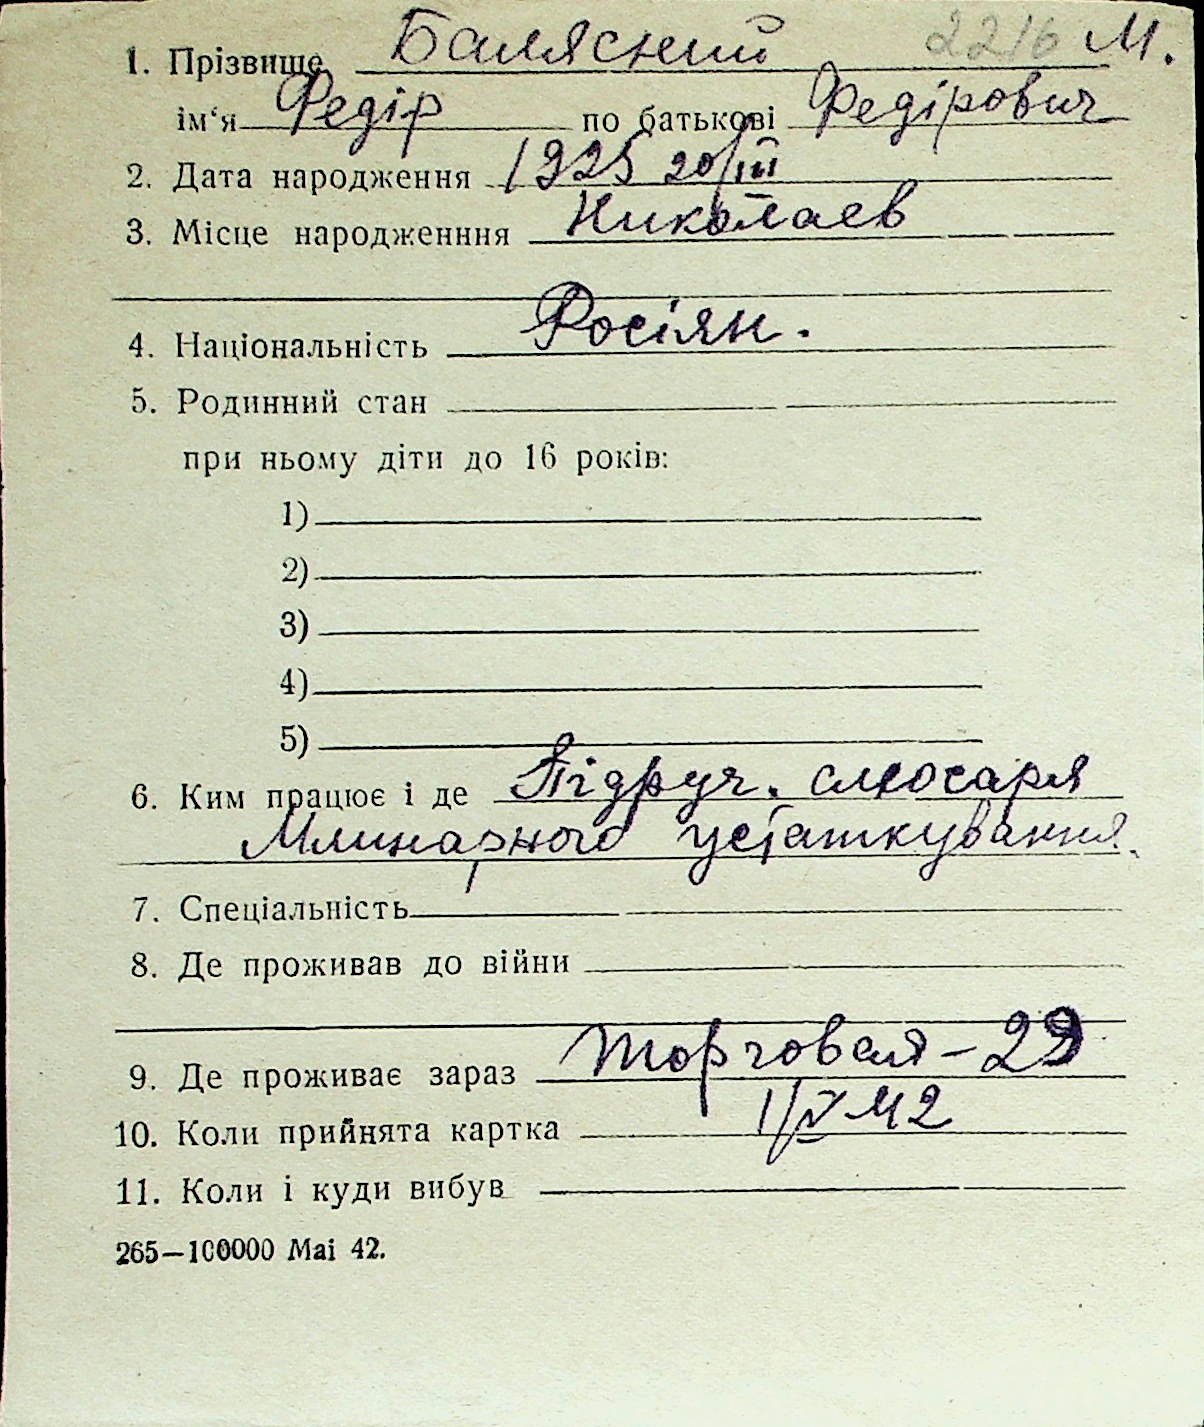 1. Прізвище Балясний 2216 М.
ім‘я Федір по батькові Федірович
2. Дата народження 1925 20/III
3. Місце народженння Николаев
4. Національність Росіян.
5. Родинний стан
при ньому діти до 16 років:
1)
2)
3)
4)
5)
6. Ким працює і де Підруч. слюсаря
Млинарного устаткування.
7. Спеціальність
8. Де проживав до війни
9. Де проживає зараз Торговая - 29
10. Коли прийнята картка 1/IV 42
11. Коли і куди вибув
265—100000 Mai 42.